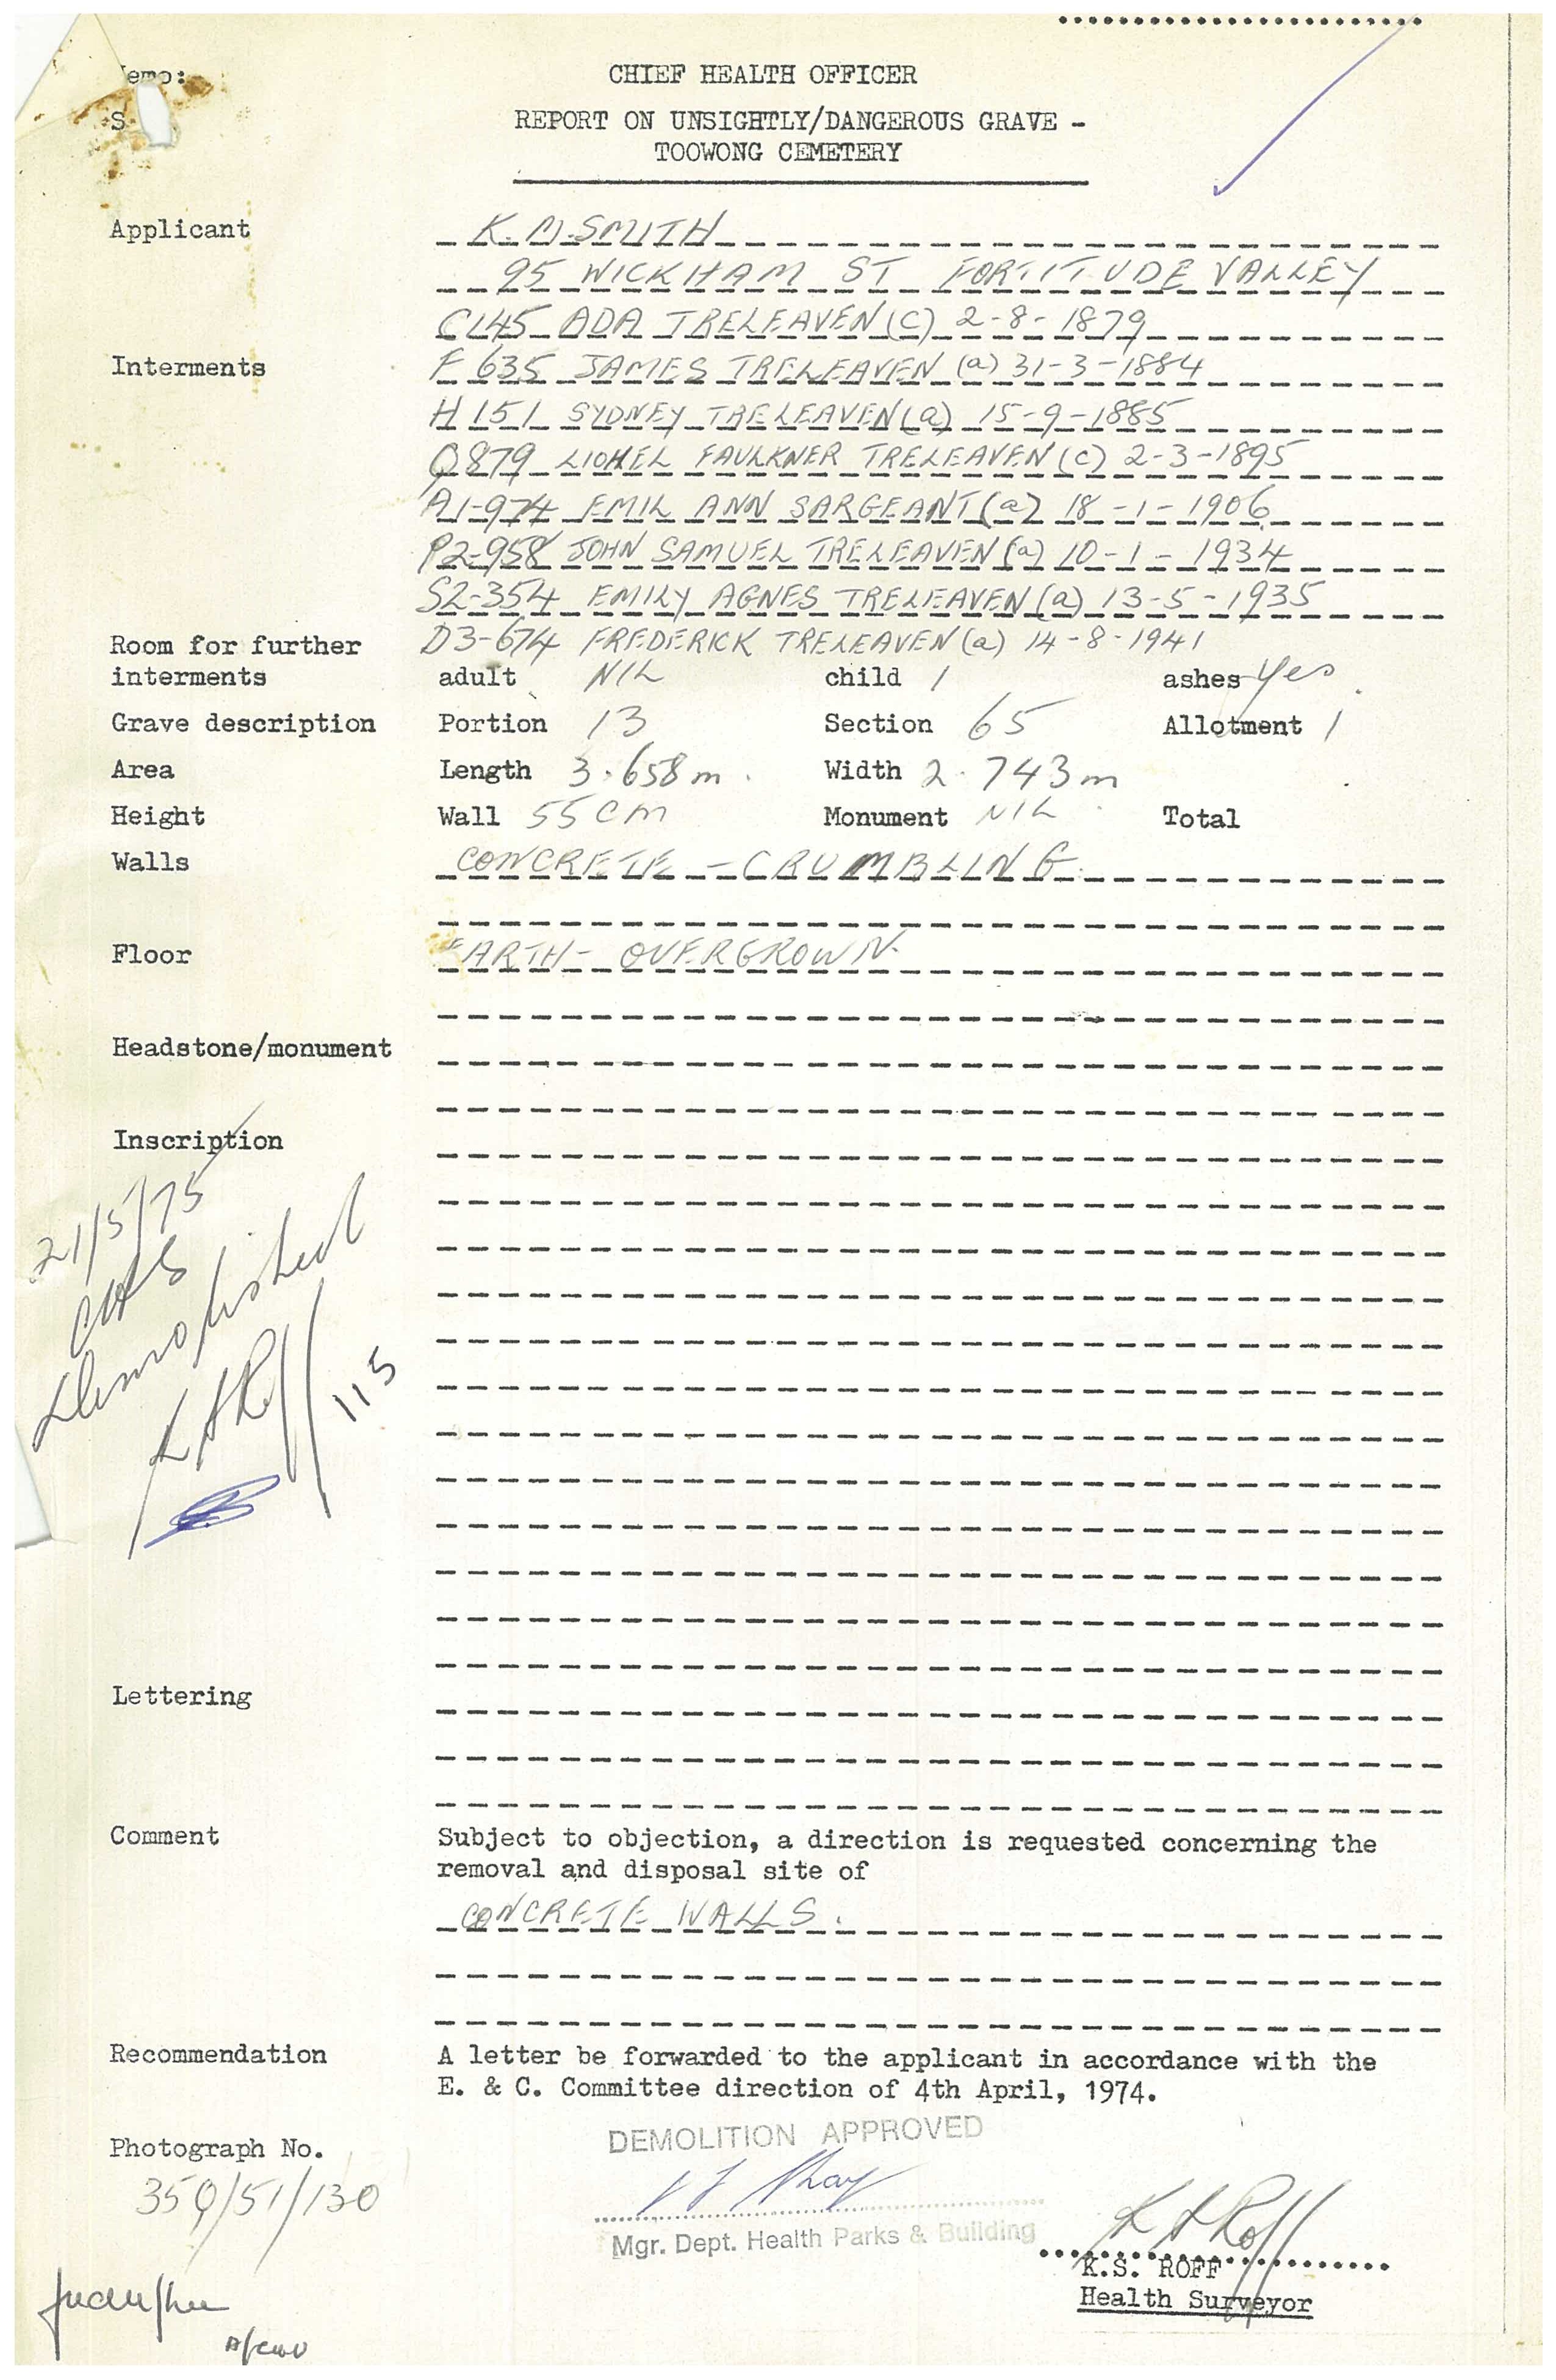 CHIEF HEALTH OFFICER
REPORT ON UNSIGHTLY/DANGEROUS GRAVE -
TOOWONG CEMETERY
Applicant K. M. SMITH
95 WICKHAM ST FORTITUDE VALLEY
C145 ADA TRELEAVEN (C) 2-8-1879
Interments F 635 JAMES TRELEAVEN (a) 31-3-1884
H 151 SYDNEY TRELEAVEN (a) 15-9-1885
Q879 LIONEL FAULKNER TRELEAVEN (C) 2-3-1895
A1-974 EMIL ANN SARGEANT (a) 18-1-1906
P2-958 JOHN SAMUEL TRELEAVEN (a) 10-1-1934
S2-354 EMILY AGNES TRELEAVEN (a) 13-5-1935
D3-674 FREDERICK TRELEAVEN (a) 14-8-1941
Room for further
interments adult NIL child 1 ashes yes
Grave description Portion 13 Section 65 Allotment 1
Area Length 3.658m Width 2.743m
Height Wall 55cm Monument NIL Total
Walls CONCRETE - CRUMBLING
Floor EARTH - OVERGROWN
Headstone/monument
Inscription
21/5/75
Demolished
K S Roff
115
Lettering
Comment Subject to objection, a direction is requested concerning the
removal and disposal site of
CONCRETE WALLS.
Recommendation A letter be forwarded to the applicant in accordance with the
E. & C. Committee direction of 4th April, 1974.
DEMOLITION APPROVED
Photograph No.
Mgr. Dept. Health Parks & Building
K S Roff
K.S. ROFF
Health Surveyor